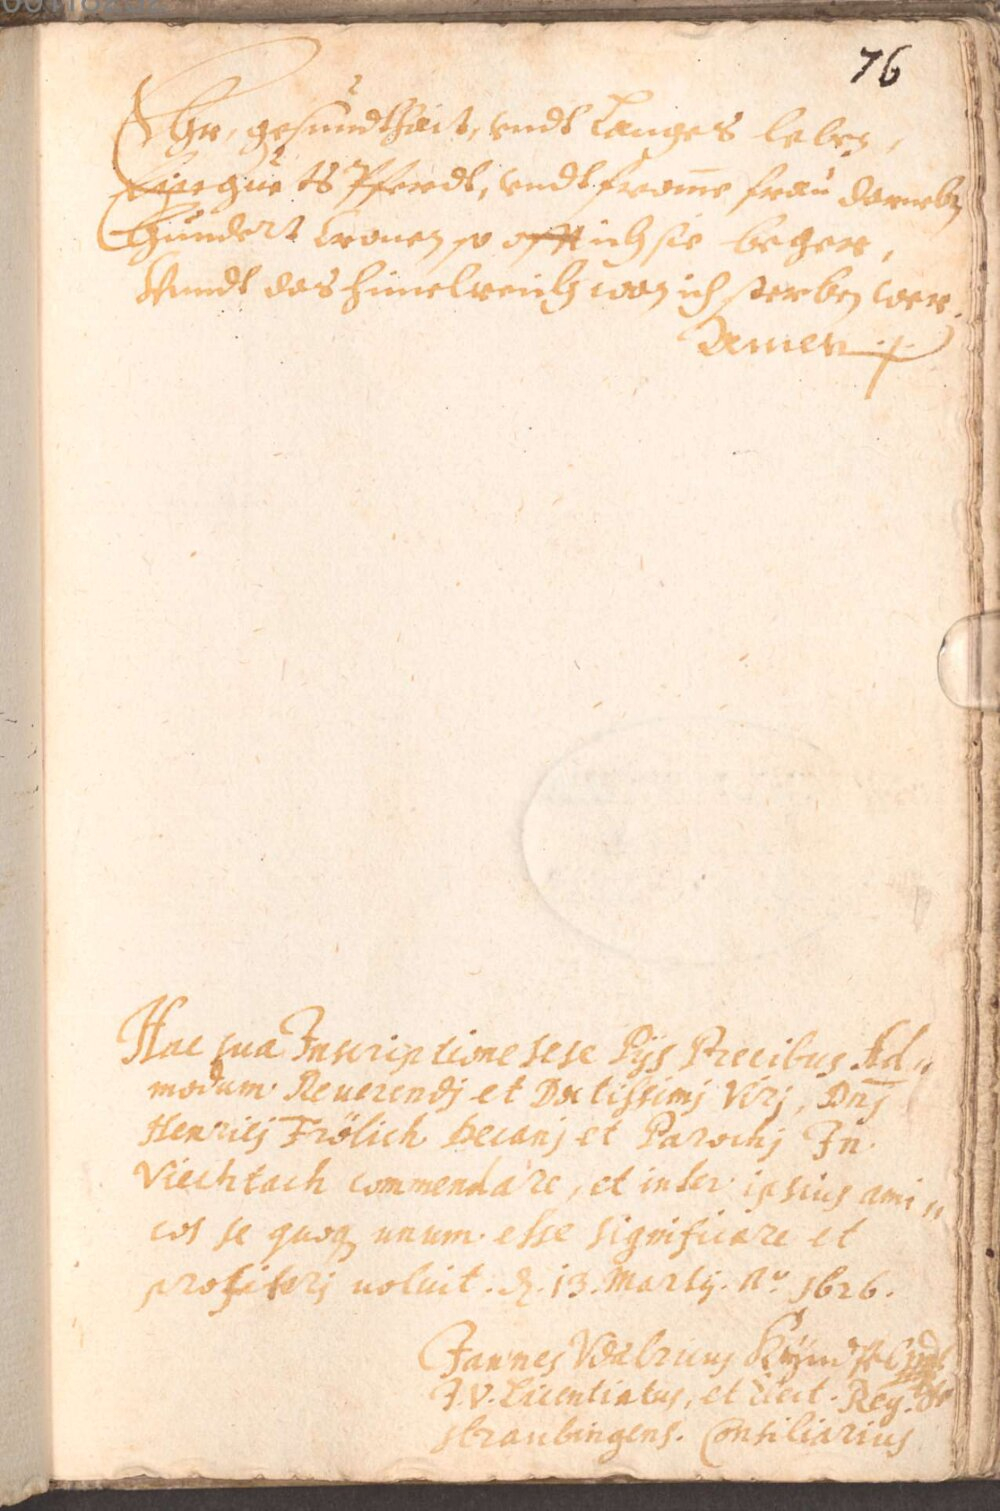 76
Ehr, gesundthait, vndt langes leben,
guets Pferdt, vndt frome frau darneben
hundert Cronen so offt ich sie beger,
Vnndt das himelreich wan ich sterben wer.
Amen
Hac sua Inscriptione sese Pijs Precibus Ad„
modum Reuerendj et Doctissimj Virj, Dnj
Henricj Frölich Decanj et Parochj In
Viechtach commendare, et inter ipsius ami„
cos se quoq unum esse significare et
profiterj uoluit. d. 13. Martij. Aº 1626.
Joannes Vdalricus
J. V. Licentiatus, et Elect. Reg.
straubingens. Consiliarius